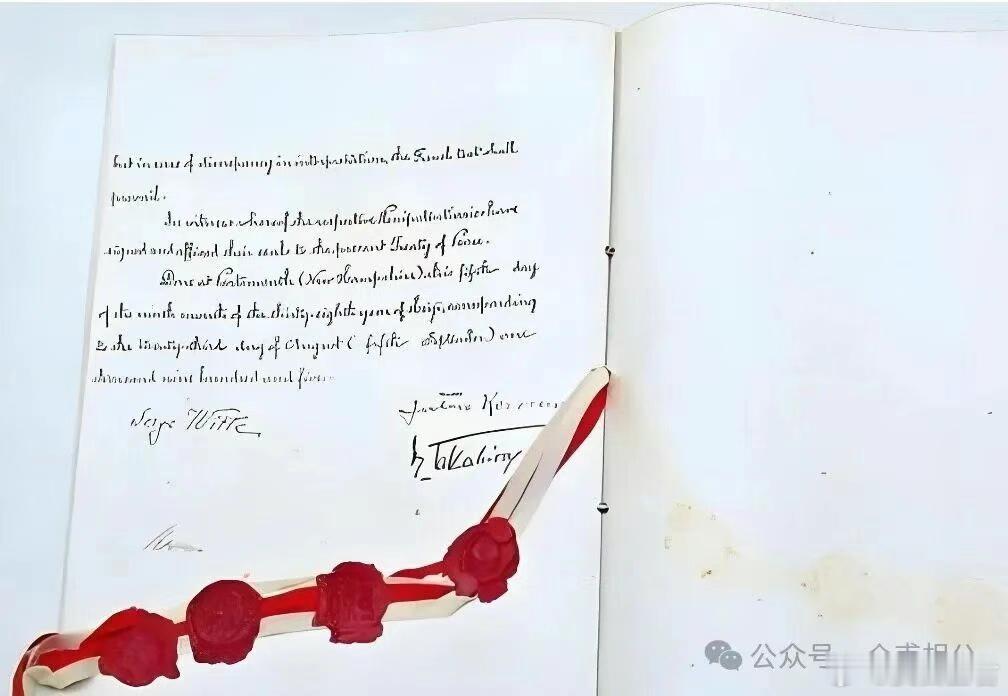 but in case of discrepancy in interpretation, the French text shall
prevail.
In witness whereof the respective Plenipotentiaries have
signed and affixed their seals to the present Treaty of Peace.
Done at Portsmouth (New Hampshire) this fifth day
of the ninth month of the thirty-eighth year of Meiji, corresponding
to the twenty-third day of August (fifth September) one
thousand nine hundred and five.
Serge Witte
Jutaro
K. Takahira
公众号